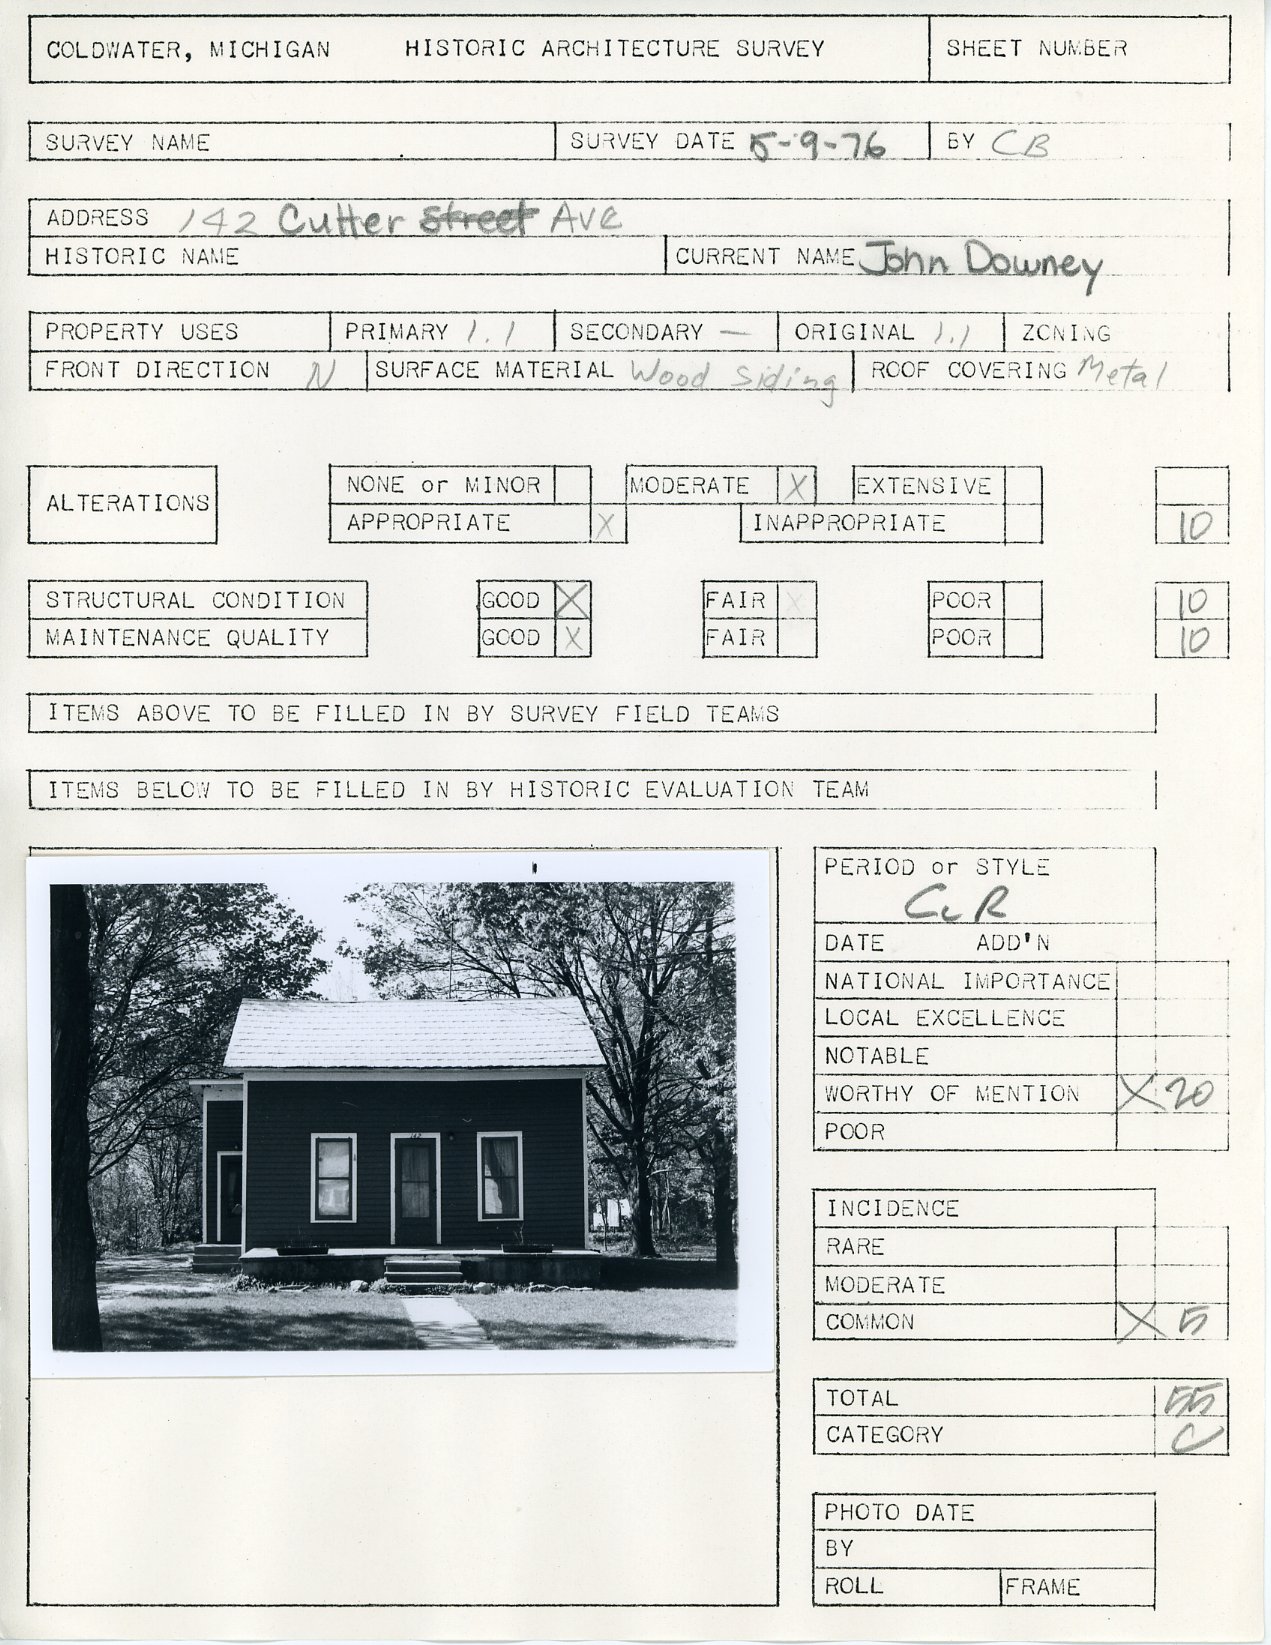 COLDWATER, MICHIGAN HISTORIC ARCHITECTURE SURVEY SHEET NUMBER
SURVEY NAME SURVEY DATE 5-9-76 BY CB
ADDRESS 142 Cutter Street Ave
HISTORIC NAME CURRENT NAME John Downey
PROPERTY USES PRIMARY 1.1 SECONDARY — ORIGINAL 1.1 ZONING
FRONT DIRECTION N SURFACE MATERIAL Wood Siding ROOF COVERING Metal
ALTERATIONS
NONE or MINOR MODERATE X EXTENSIVE
APPROPRIATE X INAPPROPRIATE 10
STRUCTURAL CONDITION GOOD X FAIR X POOR 10
MAINTENANCE QUALITY GOOD X FAIR POOR 10
ITEMS ABOVE TO BE FILLED IN BY SURVEY FIELD TEAMS
ITEMS BELOW TO BE FILLED IN BY HISTORIC EVALUATION TEAM
142
PERIOD or STYLE
DATE ADD'N
NATIONAL IMPORTANCE
LOCAL EXCELLENCE
NOTABLE
WORTHY OF MENTION X 20
POOR
INCIDENCE
RARE
MODERATE
COMMON X 5
TOTAL 55
CATEGORY C
PHOTO DATE
BY
ROLL FRAME